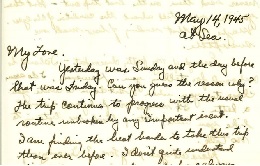 May 14, 1945
at Sea.
My Love.
Yesterday was Sunday and the day before
that was Friday. Can you guess the reason why?
The trip continues to progress with the usual
routine unbroken by any important event.
I am finding the heat harder to take this trip
than ever before. I don't quite understand